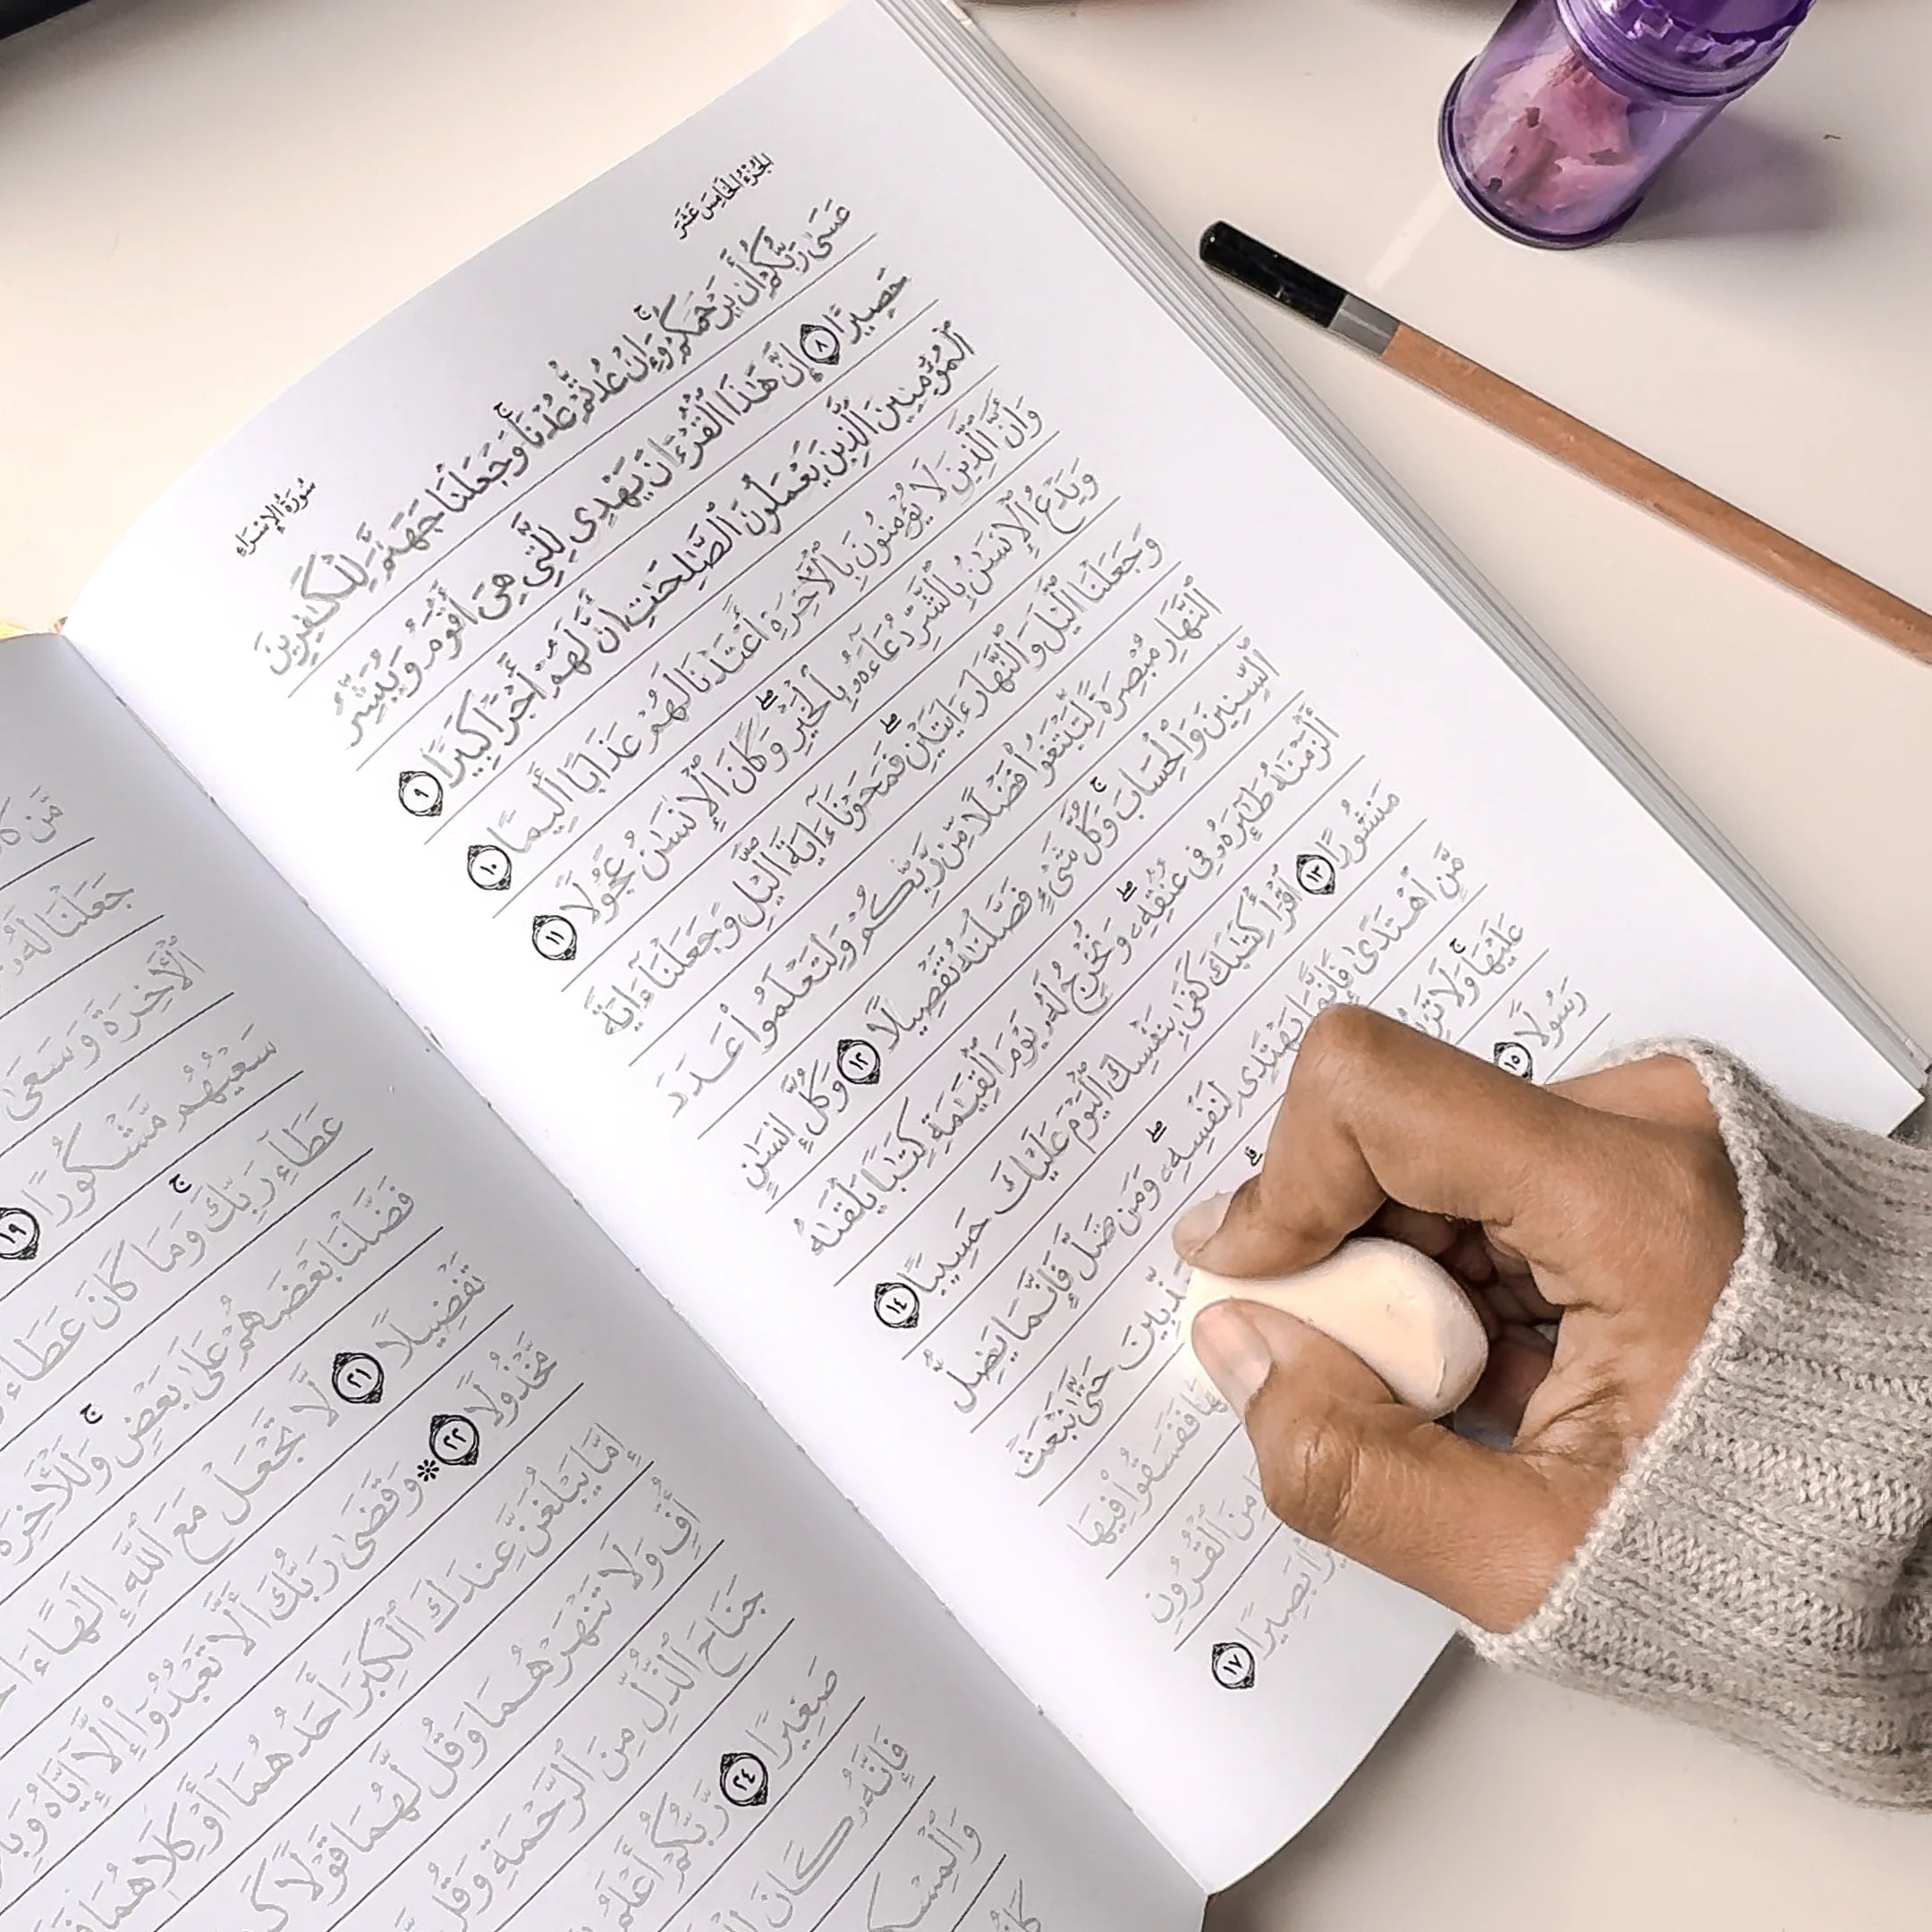 الجُزْءُ الخَامِسَ عَشَرَ
سُورَةُ الإِسْرَاءِ
عَسَىٰ رَبُّكُمْ أَن يَرْحَمَكُمْ ۚ وَإِنْ عُدتُّمْ عُدْنَا ۚ وَجَعَلْنَا جَهَنَّمَ لِلْكَـٰفِرِينَ
حَصِيرًا ٨ إِنَّ هَـٰذَا ٱلْقُرْءَانَ يَهْدِى لِلَّتِى هِىَ أَقْوَمُ وَيُبَشِّرُ
ٱلْمُؤْمِنِينَ ٱلَّذِينَ يَعْمَلُونَ ٱلصَّـٰلِحَـٰتِ أَنَّ لَهُمْ أَجْرًا كَبِيرًا ٩
وَأَنَّ ٱلَّذِينَ لَا يُؤْمِنُونَ بِٱلْـَٔاخِرَةِ أَعْتَدْنَا لَهُمْ عَذَابًا أَلِيمًا ١٠
وَيَدْعُ ٱلْإِنسَـٰنُ بِٱلشَّرِّ دُعَآءَهُۥ بِٱلْخَيْرِ ۖ وَكَانَ ٱلْإِنسَـٰنُ عَجُولًا ١١
وَجَعَلْنَا ٱلَّيْلَ وَٱلنَّهَارَ ءَايَتَيْنِ ۖ فَمَحَوْنَآ ءَايَةَ ٱلَّيْلِ وَجَعَلْنَآ ءَايَةَ
ٱلنَّهَارِ مُبْصِرَةً لِّتَبْتَغُوا۟ فَضْلًا مِّن رَّبِّكُمْ وَلِتَعْلَمُوا۟ عَدَدَ
ٱلسِّنِينَ وَٱلْحِسَابَ ۚ وَكُلَّ شَىْءٍ فَصَّلْنَـٰهُ تَفْصِيلًا ١٢ وَكُلَّ إِنسَـٰنٍ
أَلْزَمْنَـٰهُ طَـٰٓئِرَهُۥ فِى عُنُقِهِۦ ۖ وَنُخْرِجُ لَهُۥ يَوْمَ ٱلْقِيَـٰمَةِ كِتَـٰبًا يَلْقَىٰهُ
مَنشُورًا ١٣ ٱقْرَأْ كِتَـٰبَكَ كَفَىٰ بِنَفْسِكَ ٱلْيَوْمَ عَلَيْكَ حَسِيبًا ١٤
مَّنِ ٱهْتَدَىٰ فَإِنَّمَا يَهْتَدِى لِنَفْسِهِۦ ۖ وَمَن ضَلَّ فَإِنَّمَا يَضِلُّ
عَلَيْهَا ۚ وَلَا حَتَّىٰ نَبْعَثَ
رَسُولًا ١٥ فَفَسَقُوا۟ فِيهَا
مِنَ ٱلْقُرُونِ
بَصِيرًا ١٧
مَّن
جَعَلْنَا لَهُۥ
ٱلْـَٔاخِرَةَ وَسَعَىٰ
سَعْيُهُم مَّشْكُورًا ١٩
عَطَآءِ رَبِّكَ ۚ وَمَا كَانَ عَطَآءُ
فَضَّلْنَا بَعْضَهُمْ عَلَىٰ بَعْضٍ ۚ وَلَلْـَٔاخِرَةُ
تَفْضِيلًا ٢١ لَّا تَجْعَلْ مَعَ ٱللَّهِ إِلَـٰهًا
مَّخْذُولًا ٢٢ ۞ وَقَضَىٰ رَبُّكَ أَلَّا تَعْبُدُوٓا۟ إِلَّآ إِيَّاهُ
إِمَّا يَبْلُغَنَّ عِندَكَ ٱلْكِبَرَ أَحَدُهُمَآ أَوْ كِلَاهُمَا
أُفٍّ وَلَا تَنْهَرْهُمَا وَقُل لَّهُمَا قَوْلًا
جَنَاحَ ٱلذُّلِّ مِنَ ٱلرَّحْمَةِ وَقُل
صَغِيرًا ٢٤ رَّبُّكُمْ أَعْلَمُ
فَإِنَّهُۥ كَانَ